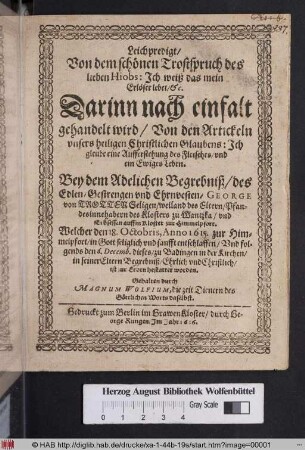 Leichpredigt/
Von dem schönen Trostspruch des
lieben Hiobs: Ich weiß das mein
Erlöser lebet/&c.
Darinn nach einfalt
gehandelt wird/ Von den Artickeln
vnsers heiligen Christlichen Glaubens: Ich
gleube eine Aufferstehung des Fleisches/ vnd
ein Ewiges Leben.
Bey dem Adelichen Begrebniß/ des
Edlen/ Gestrengen vnd Ehrnvesten/ GEORGE
von TROTTEN Seligen/ weiland des Eltern/ Pfan-
desinnehabern des Klosters zu Wantzka/ vnd
Erbsessen auffm zur Himmelpfort.
Welcher den 18. Octobris, Anno 1615. zur Him-
melpfort/ in Gott seliglich vnd sanfft entschlaffen/ Vnd fol-
gends den 6. Decemb. dieses/ zu Badingen in der Kirchen/
in seiner Eltern Begrebniß/ Ehrlich vnd Christlich/
ist zur Erden bestattet worden.
Gehalten durch
MAGNUM WOLFIUM, die zeit Dienern des
Göttlichen Worts daselbst.
Gedruckt zum Berlin im Grawen Kloster/ durch Ge-
orge Rungen/ Im Jahr
Herzog August Bibliothek Wolfenbüttel
Gray Scale
© HAB http://diglib.hab.de/drucke/xa-1-44b-19s/start.htm?image=00001